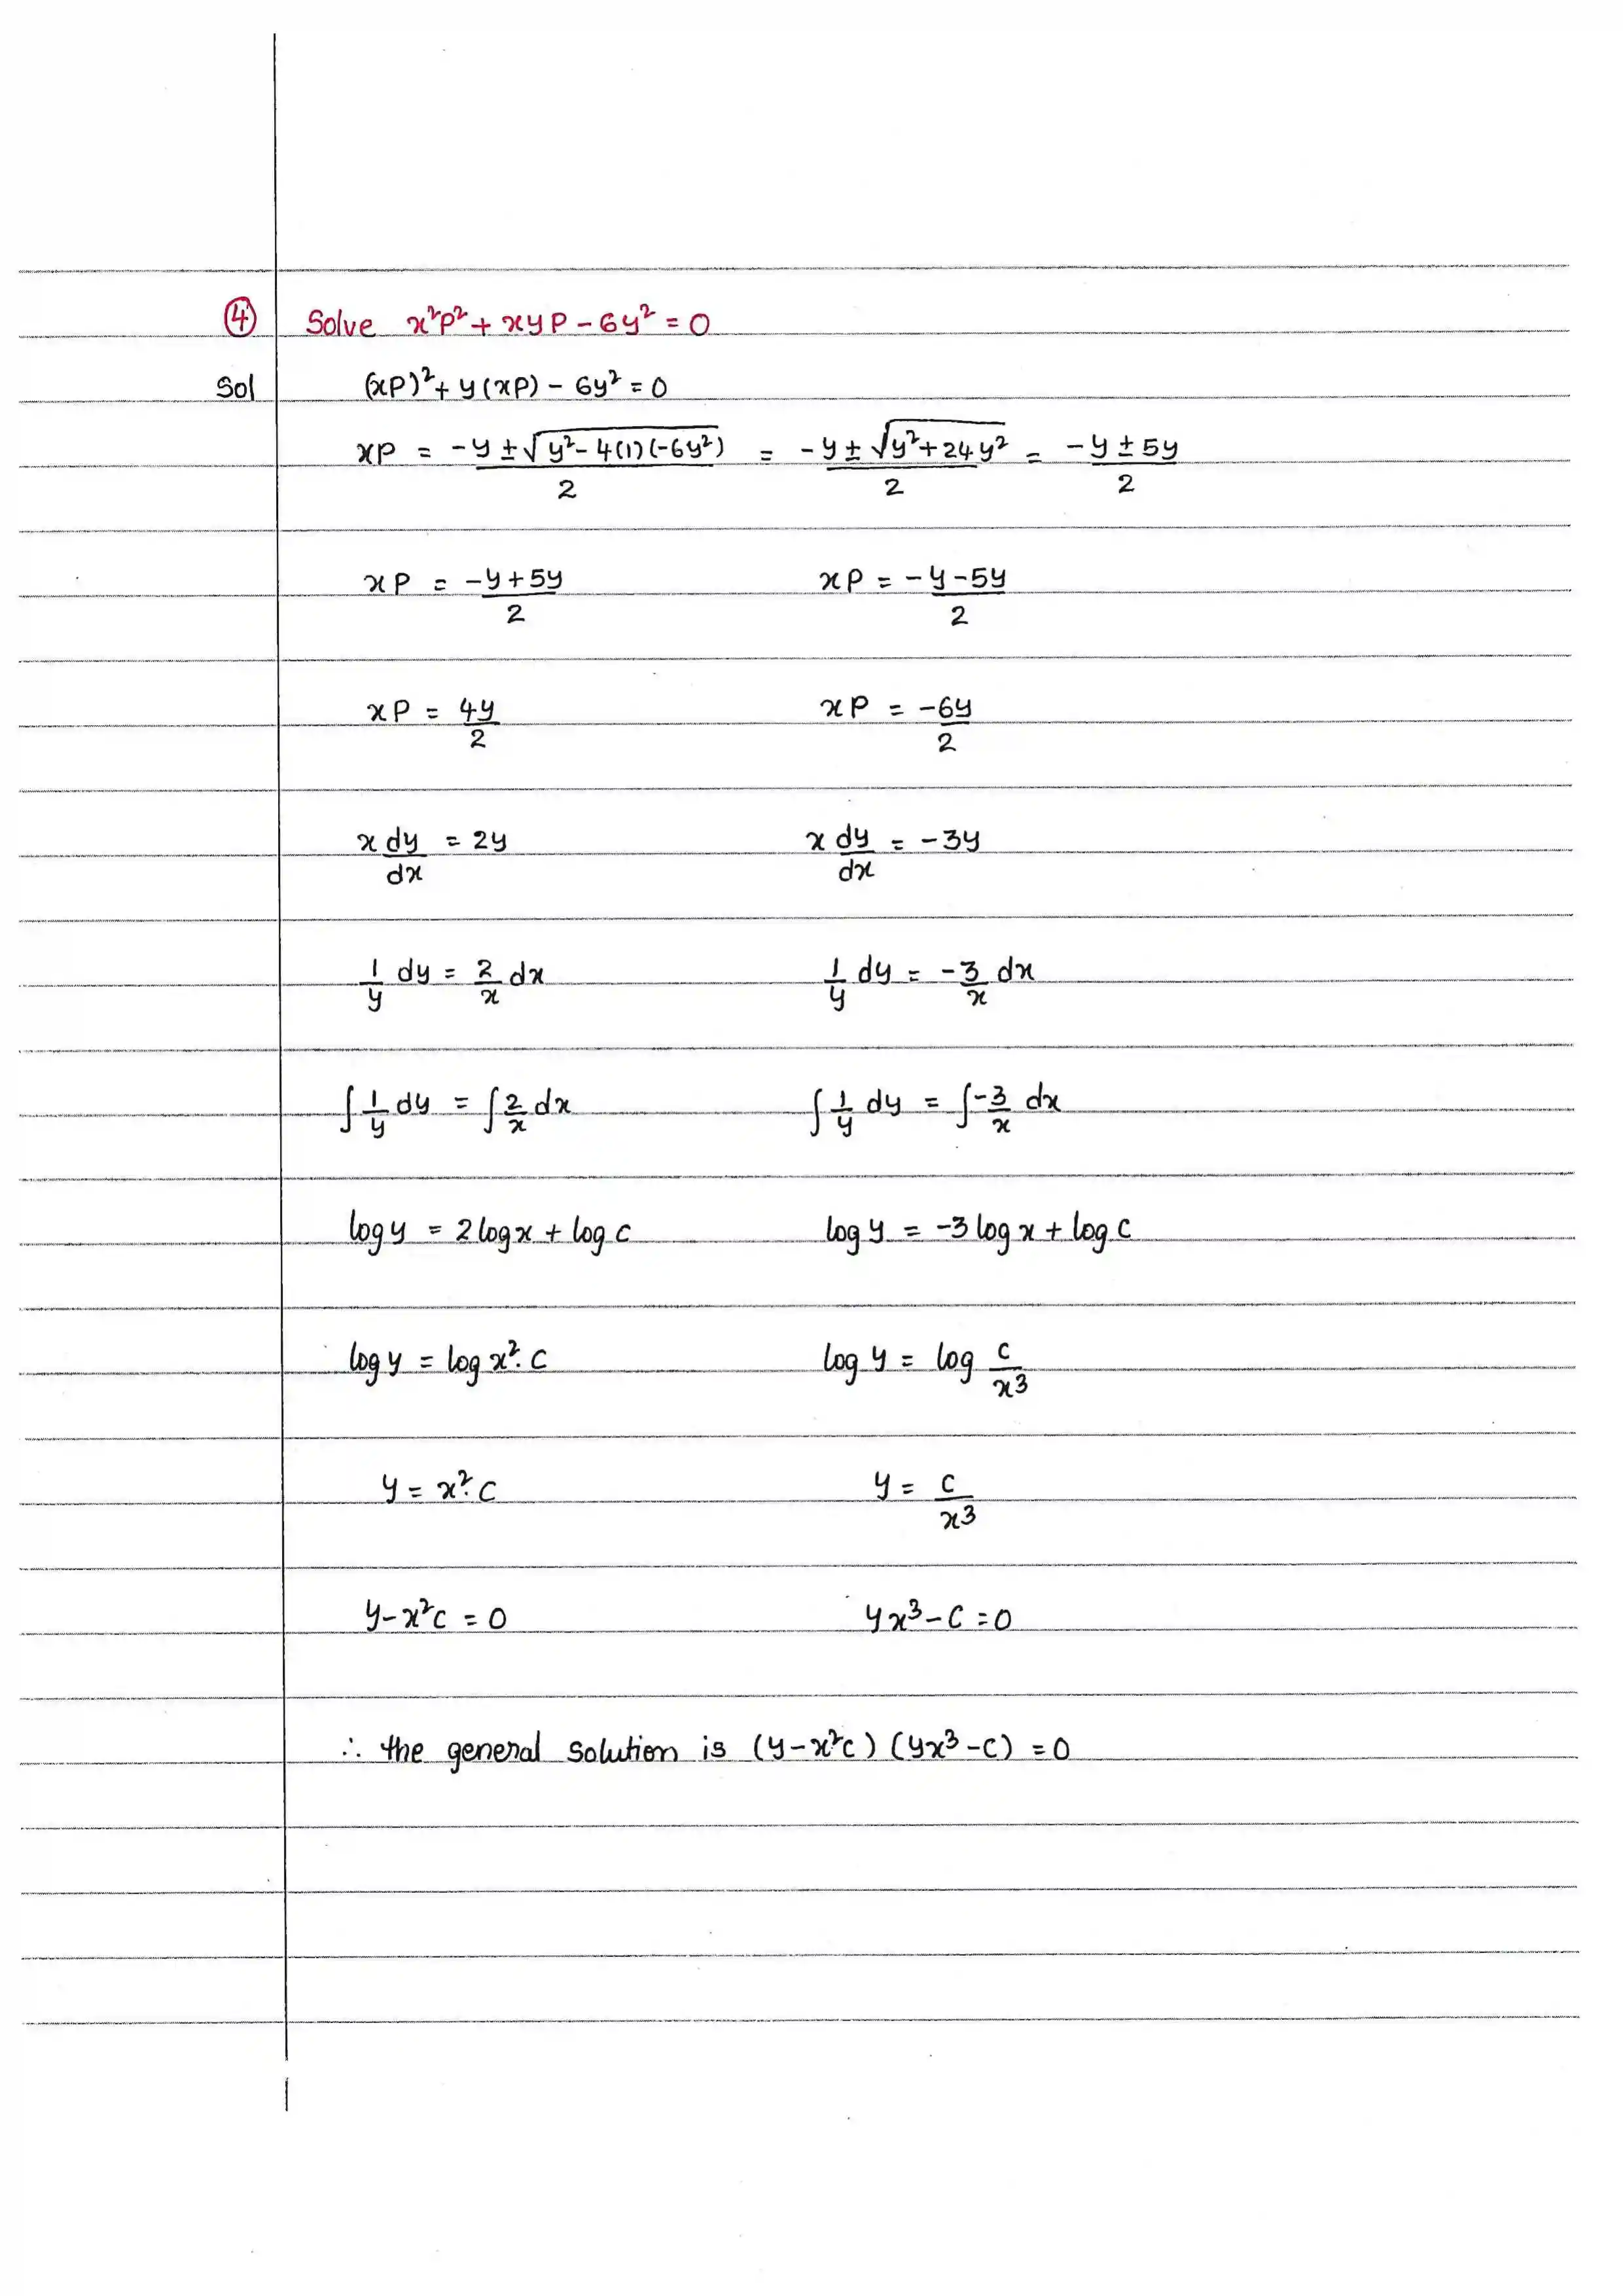 ④ Solve x²P² + xyP - 6y² = 0
Sol (xP)² + y(xP) - 6y² = 0
xP = (-y ± √(y² - 4(1)(-6y²)))/2 = (-y ± √(y² + 24y²))/2 = (-y ± 5y)/2
xP = (-y + 5y)/2 xP = (-y - 5y)/2
xP = 4y/2 xP = -6y/2
x dy/dx = 2y x dy/dx = -3y
1/y dy = 2/x dx 1/y dy = -3/x dx
∫ 1/y dy = ∫ 2/x dx ∫ 1/y dy = ∫ -3/x dx
log y = 2 log x + log c log y = -3 log x + log c
log y = log x². c log y = log c/x³
y = x². c y = c/x³
y - x²c = 0 yx³ - c = 0
∴ the general solution is (y - x²c) (yx³ - c) = 0